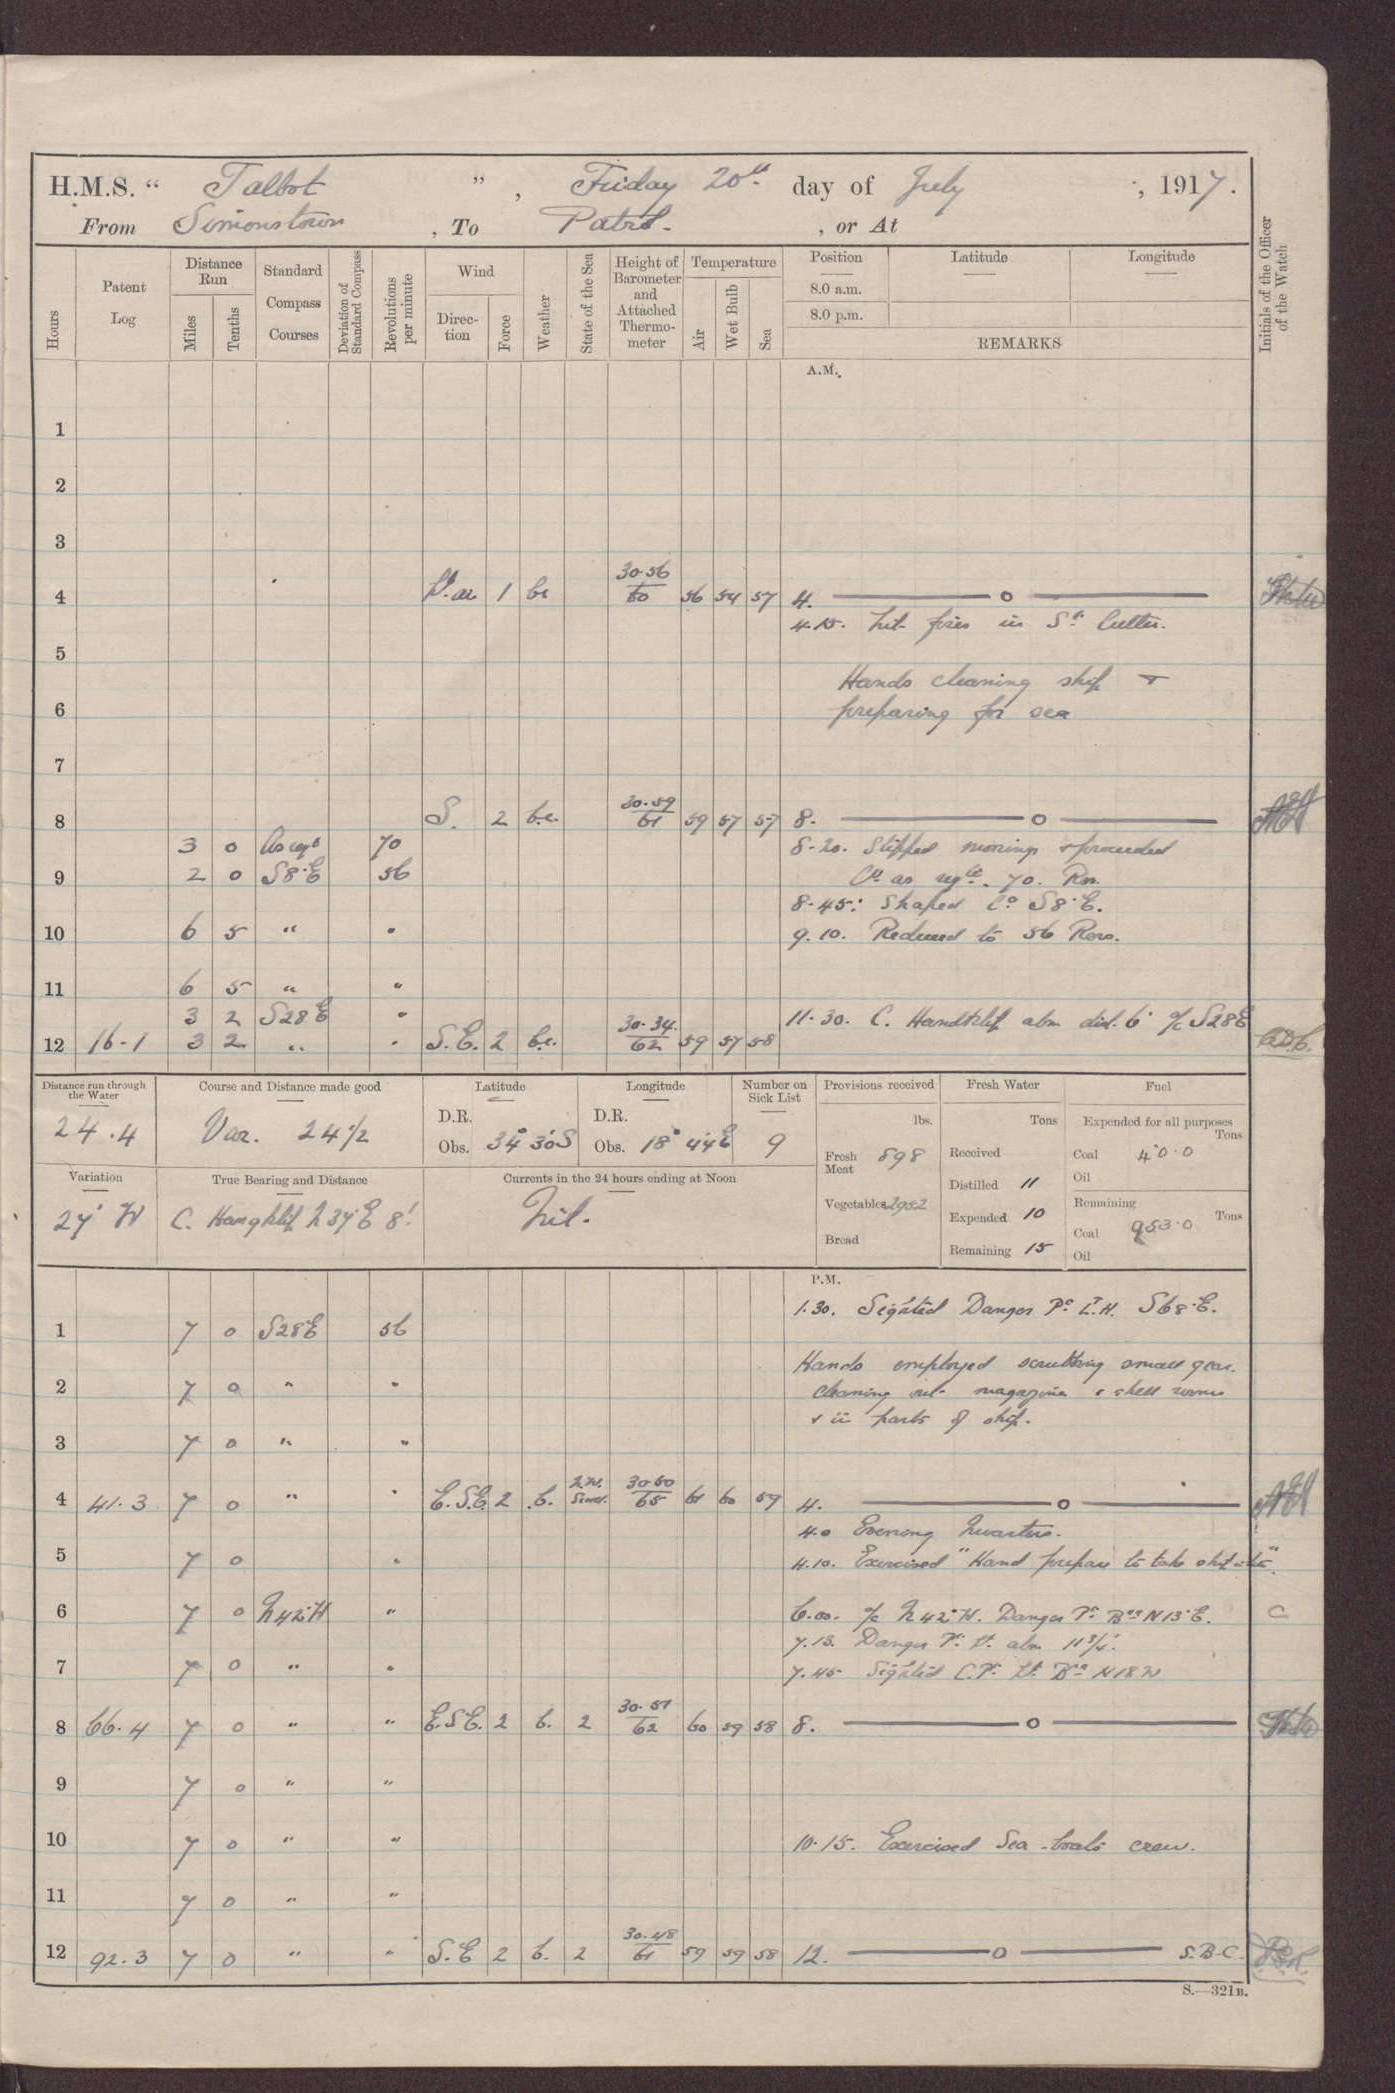 H.M.S. “ Talbot ” , Friday 20th day of July , 1917.
From Simonstown , To Patrol. , or At
Hours
Patent Log
Distance Run
Miles
Tenths
Standard Compass Courses
Deviation of Standard Compass
Revolutions per minute
Wind
Direction
Force
Weather
State of the Sea
Height of Barometer and Attached Thermometer
Temperature
Air
Wet Bulb
Sea
Position
8.0 a.m.
8.0 p.m.
Latitude
Longitude
REMARKS
Initials of the Officer of the Watch
A.M.
1
2
3
4 1 bc 30.56 60 56 54 57 4. —o—
4.15. Lit fires in Sm Cutter.
5
Hands cleaning ship +
6 preparing for sea
7
8 S. 2 b.c. 30.59 61 59 57 57 8. —o—
3 0 As reqd 70 8.20. Slipped moorings & proceeded
9 2 0 S8°E 56 Co as reqte. 70. Rvs.
8.45: Shaped Co S8°E.
10 6 5 “ “ 9.10. Reduced to 56 Revs.
11 6 5 “ “
3 2 S28E “ 11.30. C. Hangklip abm dist. 6' a/c S28E
12 16.1 3 2 “ “ S.E. 2 b.c. 30.34 62 59 57 58
Distance run through the Water
24.4
Course and Distance made good
Var. 24½
Latitude
D.R.
Obs. 34° 30' S
Longitude
D.R.
Obs. 18° 44' E
Number on Sick List
9
Variation
27° W
True Bearing and Distance
C. Hangklip N 37°E 8'.
Currents in the 24 hours ending at Noon
Nil.
Provisions received
lbs.
Fresh Meat 898
Vegetables
Bread
Fresh Water
Tons
Received
Distilled 11
Expended 10
Remaining 15
Fuel
Expended for all purposes
Tons
Coal 40.0
Oil
Remaining
Tons
Coal 953.0
Oil
P.M.
1.30. Sighted Danger Pt L.H. S68°E.
1 7 0 S28°E 56
Hands employed scrubbing small gear.
2 7 0 “ “ cleaning out magazines & shell rooms
& in parts of ship.
3 7 0 “ “
4 41.3 7 0 “ “ E.S.E. 2 b. 30.60 65 61 60 59 4. —o—
4.0 Evening Quarters.
5 7 0 “ 4.10. Exercised “Hand prepare to take ship in tow”.
6 7 0 N42°W “ 6.00. a/c N42°W. Danger Pt Brg N13°E. C
7.13. Danger Pt Lt. abm 11¾'.
7 7 0 “ “ 7.45 Sighted C.Pt. Lt. Brg N18W
8 66.4 7 0 “ “ E.S.E. 2 b. 2 30.51 62 60 59 58 8. —o—
9 7 0 “ “
10 7 0 “ “ 10.15. Exercised Sea-boats crew.
11 7 0 “ “
12 92.3 7 0 “ “ S.E 2 b. 2 30.48 61 59 59 58 12. —o— S.B.C.
S.—321B.